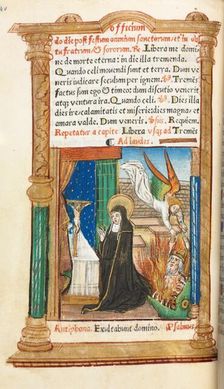 officium
to die post festum omnium sanctorum, et in obi
tu fratrum, & sororum. R. Libera me domi
ne de morte eterna: in die illa tremenda.
Quando celi mouendi sunt et terra. Dum ve
neris iudicare seculum per ignem. V. Tremēs
factus sum ego et timeo dum discussio venerit
atq; ventura ira. Quando celi. V. Dies illa
dies ire: calamitatis et miserie: dies magna et
amara valde. Dum veneris. Vsus. Requiem.
Repetatur a capite Libera vsq; ad Tremēs
Ad laudes.
Antiphona. Exultabunt domino. Psalmus.